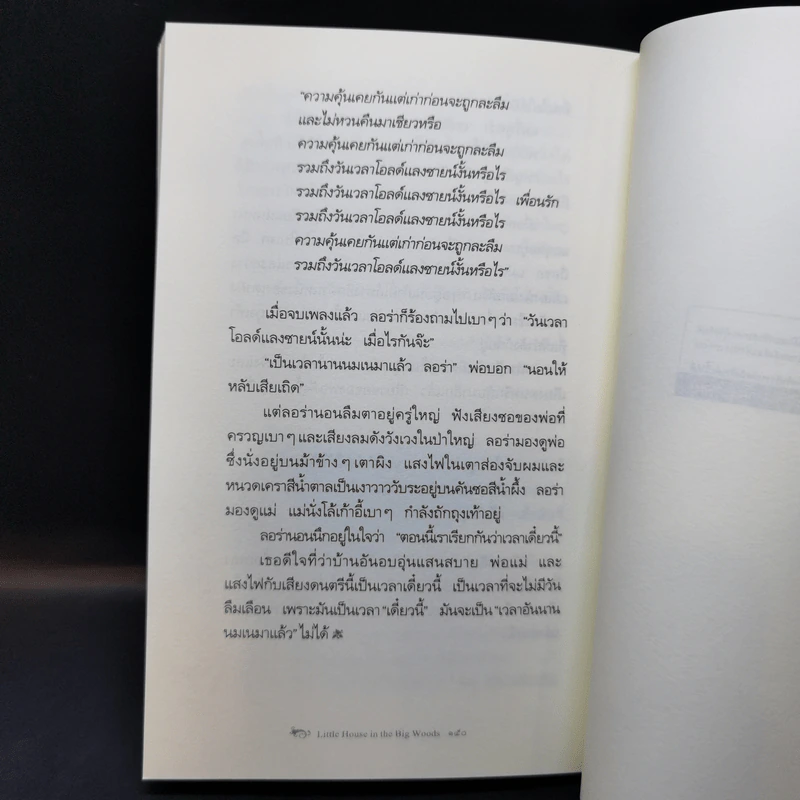 "ความคุ้นเคยกันแต่เก่าก่อนจะถูกละลืม
และไม่หวนคืนมาเชียวหรือ
ความคุ้นเคยกันแต่เก่าก่อนจะถูกละลืม
รวมถึงวันเวลาโอลด์แลงซายน์งั้นหรือไร
รวมถึงวันเวลาโอลด์แลงซายน์งั้นหรือไร เพื่อนรัก
รวมถึงวันเวลาโอลด์แลงซายน์งั้นหรือไร
ความคุ้นเคยกันแต่เก่าก่อนจะถูกละลืม
รวมถึงวันเวลาโอลด์แลงซายน์งั้นหรือไร"
เมื่อจบเพลงแล้ว ลอร่าก็ร้องถามไปเบาๆว่า "วันเวลา
โอลด์แลงซายน์นั้นน่ะ เมื่อไรกันจ๊ะ"
"เป็นเวลานานนมเนมาแล้ว ลอร่า" พ่อบอก "นอนให้
หลับเสียเถิด"
แต่ลอร่านอนลืมตาอยู่ครู่ใหญ่ ฟังเสียงซอของพ่อที่
ครวญเบาๆและเสียงลมดังวังเวงในป่าใหญ่ ลอร่ามองดูพ่อ
ซึ่งนั่งอยู่บนม้าข้างๆเตาผิง แสงไฟในเตาส่องจับผมและ
หนวดเคราสีน้ำตาลเป็นเงาวาววับระอยู่บนคันซอสีน้ำผึ้ง ลอร่า
มองดูแม่ แม่นั่งโล้เก้าอี้เบาๆ กำลังถักถุงเท้าอยู่
ลอร่านอนนึกอยู่ในใจว่า "ตอนนี้เราเรียกกันว่าเวลาเดี๋ยวนี้"
เธอดีใจที่ว่าบ้านอันอบอุ่นแสนสบาย พ่อแม่ และ
แสงไฟกับเสียงดนตรีนี้เป็นเวลาเดี๋ยวนี้ เป็นเวลาที่จะไม่มีวัน
ลืมเลือน เพราะมันเป็นเวลา"เดี๋ยวนี้" มันจะเป็น"เวลาอันนาน
นมเนมาแล้ว"ไม่ได้
Little House in the Big Woods ๑๕๐